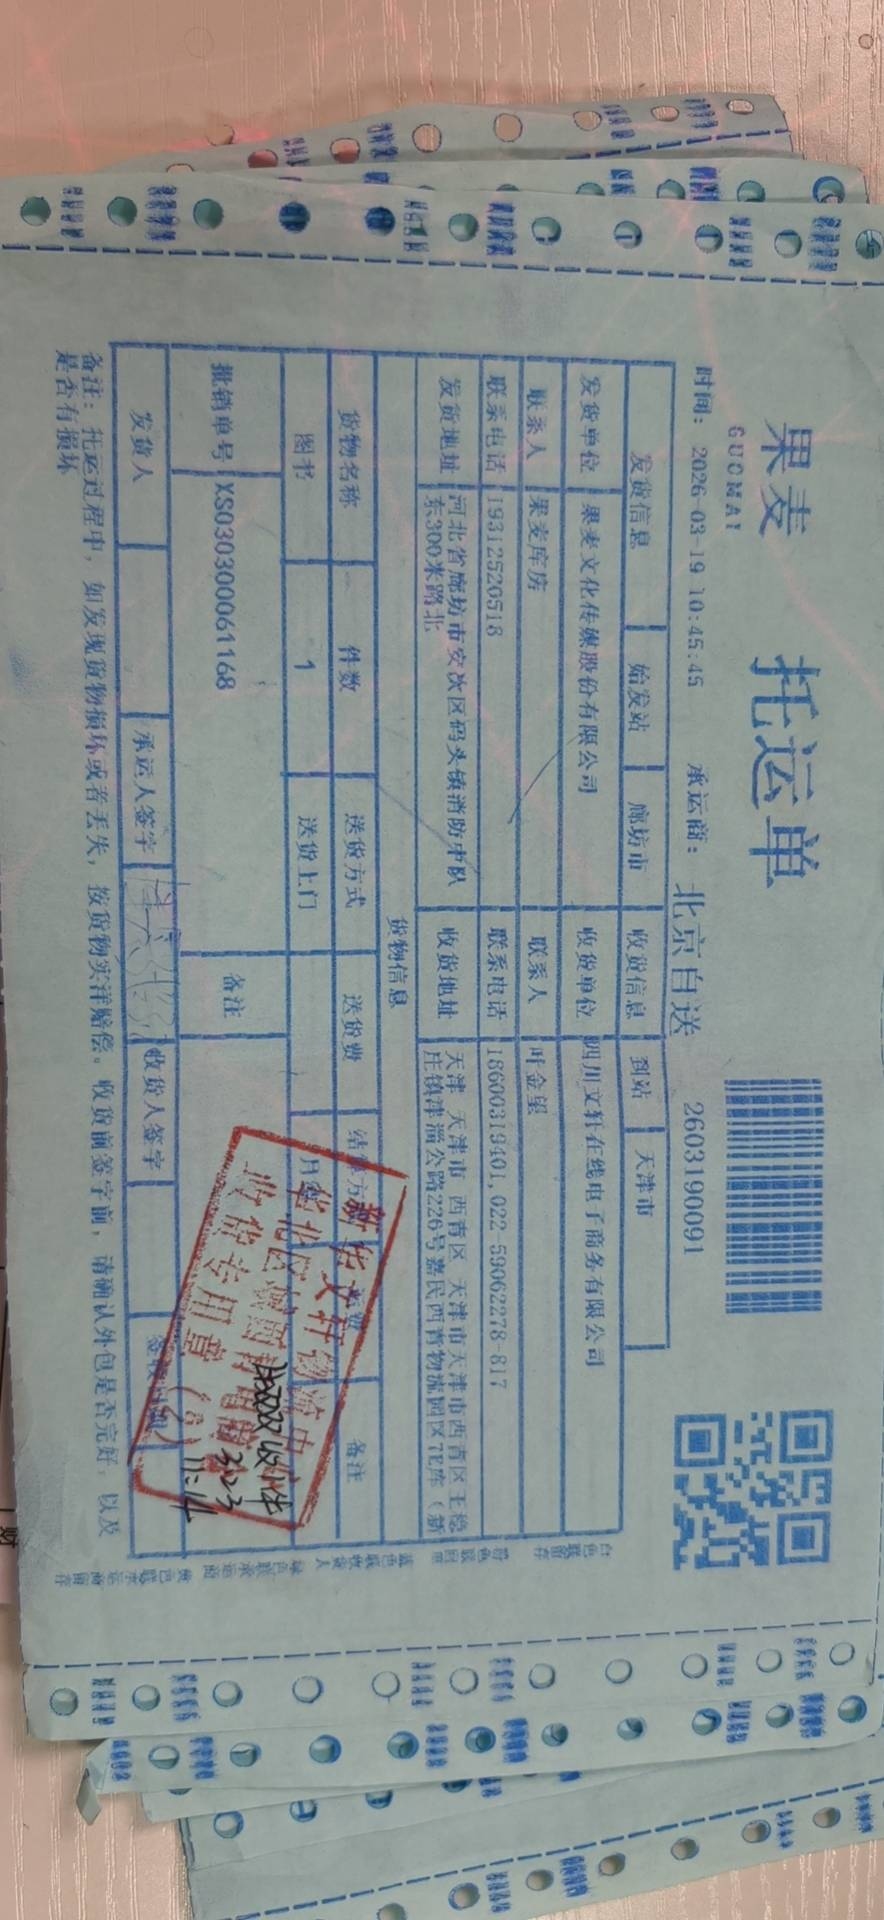 果麦
GUOMAI
托运单
时间: 2026-03-19 10:45:45 承运商: 北京自送 2603190091
发货信息 始发站 廊坊市 收货信息 到站 天津市
发货单位 果麦文化传媒股份有限公司 收货单位 四川文轩在线电子商务有限公司
联系人 果麦库房 联系人 叶金望
联系电话 19312520518 联系电话 18600319401,022-59062278-817
发货地址 河北省廊坊市安次区码头镇消防中队东300米路北 收货地址 天津 天津市 西青区 天津市天津市西青区王稳庄镇津淄公路226号嘉民西青物流园区7E库（新
货物信息
货物名称 件数 送货方式 送货费 备注
图书 1 送货上门
批销单号 XS030300061168 备注
发货人 承运人签字 收货人签字
备注: 托运过程中, 如发现货物损坏或者丢失, 按货物实洋赔偿。收货前签字前, 请确认外包是否完好, 以及是否有损坏
新华文轩物流中
华北区
收货专用章
11:14